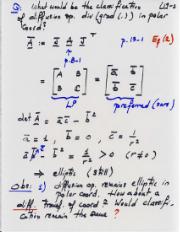 Q: What would be the classification
of diffusion op. div (grad (.)) in polar
coord?
A̅ := J A J^T p. 18-1 Eq (2)
p. 8-1
= [A B; B C] = [a̅ b̅; b̅ c̅]
LP preferred
det A̅ = a̅ c̅ - b̅²
a̅ = 1 b̅ = 0, c̅ = 1/r²
a̅ c̅ - b̅² = 1/r² > 0 (r≠0)
⇒ elliptic (still)
Obs: 1) diffusion op. remains elliptic in
polar coord. How about a
diff. transf. of coord? Would classifi-
cation remain the same?